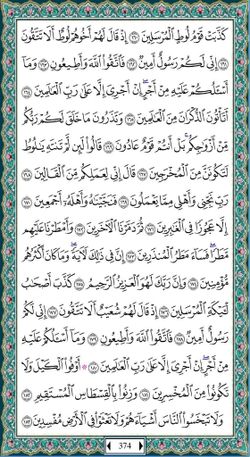 كَذَّبَتْ قَوْمُ لُوطٍ الْمُرْسَلِينَ ﴿١٦٠﴾ إِذْ قَالَ لَهُمْ أَخُوهُمْ لُوطٌ أَلَا تَتَّقُونَ
﴿١٦١﴾ إِنِّي لَكُمْ رَسُولٌ أَمِينٌ ﴿١٦٢﴾ فَاتَّقُوا اللَّهَ وَأَطِيعُونِ ﴿١٦٣﴾ وَمَا
أَسْأَلُكُمْ عَلَيْهِ مِنْ أَجْرٍ إِنْ أَجْرِيَ إِلَّا عَلَىٰ رَبِّ الْعَالَمِينَ ﴿١٦٤﴾
أَتَأْتُونَ الذُّكْرَانَ مِنَ الْعَالَمِينَ ﴿١٦٥﴾ وَتَذَرُونَ مَا خَلَقَ لَكُمْ رَبُّكُمْ
مِنْ أَزْوَاجِكُمْ بَلْ أَنْتُمْ قَوْمٌ عَادُونَ ﴿١٦٦﴾ قَالُوا لَئِنْ لَمْ تَنْتَهِ يَا لُوطُ
لَتَكُونَنَّ مِنَ الْمُخْرَجِينَ ﴿١٦٧﴾ قَالَ إِنِّي لِعَمَلِكُمْ مِنَ الْقَالِينَ ﴿١٦٨﴾
رَبِّ نَجِّنِي وَأَهْلِي مِمَّا يَعْمَلُونَ ﴿١٦٩﴾ فَنَجَّيْنَاهُ وَأَهْلَهُ أَجْمَعِينَ ﴿١٧٠﴾
إِلَّا عَجُوزًا فِي الْغَابِرِينَ ﴿١٧١﴾ ثُمَّ دَمَّرْنَا الْآخَرِينَ ﴿١٧٢﴾ وَأَمْطَرْنَا عَلَيْهِمْ
مَطَرًا فَسَاءَ مَطَرُ الْمُنْذَرِينَ ﴿١٧٣﴾ إِنَّ فِي ذَٰلِكَ لَآيَةً وَمَا كَانَ أَكْثَرُهُمْ
مُؤْمِنِينَ ﴿١٧٤﴾ وَإِنَّ رَبَّكَ لَهُوَ الْعَزِيزُ الرَّحِيمُ ﴿١٧٥﴾ كَذَّبَ أَصْحَابُ
لْئَيْكَةِ الْمُرْسَلِينَ ﴿١٧٦﴾ إِذْ قَالَ لَهُمْ شُعَيْبٌ أَلَا تَتَّقُونَ ﴿١٧٧﴾ إِنِّي لَكُمْ
رَسُولٌ أَمِينٌ ﴿١٧٨﴾ فَاتَّقُوا اللَّهَ وَأَطِيعُونِ ﴿١٧٩﴾ وَمَا أَسْأَلُكُمْ عَلَيْهِ
مِنْ أَجْرٍ إِنْ أَجْرِيَ إِلَّا عَلَىٰ رَبِّ الْعَالَمِينَ ﴿١٨٠﴾ أَوْفُوا الْكَيْلَ وَلَا
تَكُونُوا مِنَ الْمُخْسِرِينَ ﴿١٨١﴾ وَزِنُوا بِالْقِسْطَاسِ الْمُسْتَقِيمِ ﴿١٨٢﴾
وَلَا تَبْخَسُوا النَّاسَ أَشْيَاءَهُمْ وَلَا تَعْثَوْا فِي الْأَرْضِ مُفْسِدِينَ ﴿١٨٣﴾
374